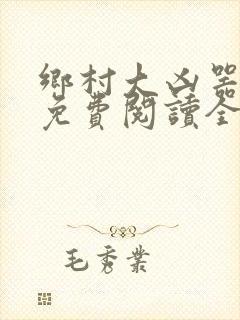 鄉村大凶器
免費閱讀全
毛秀業